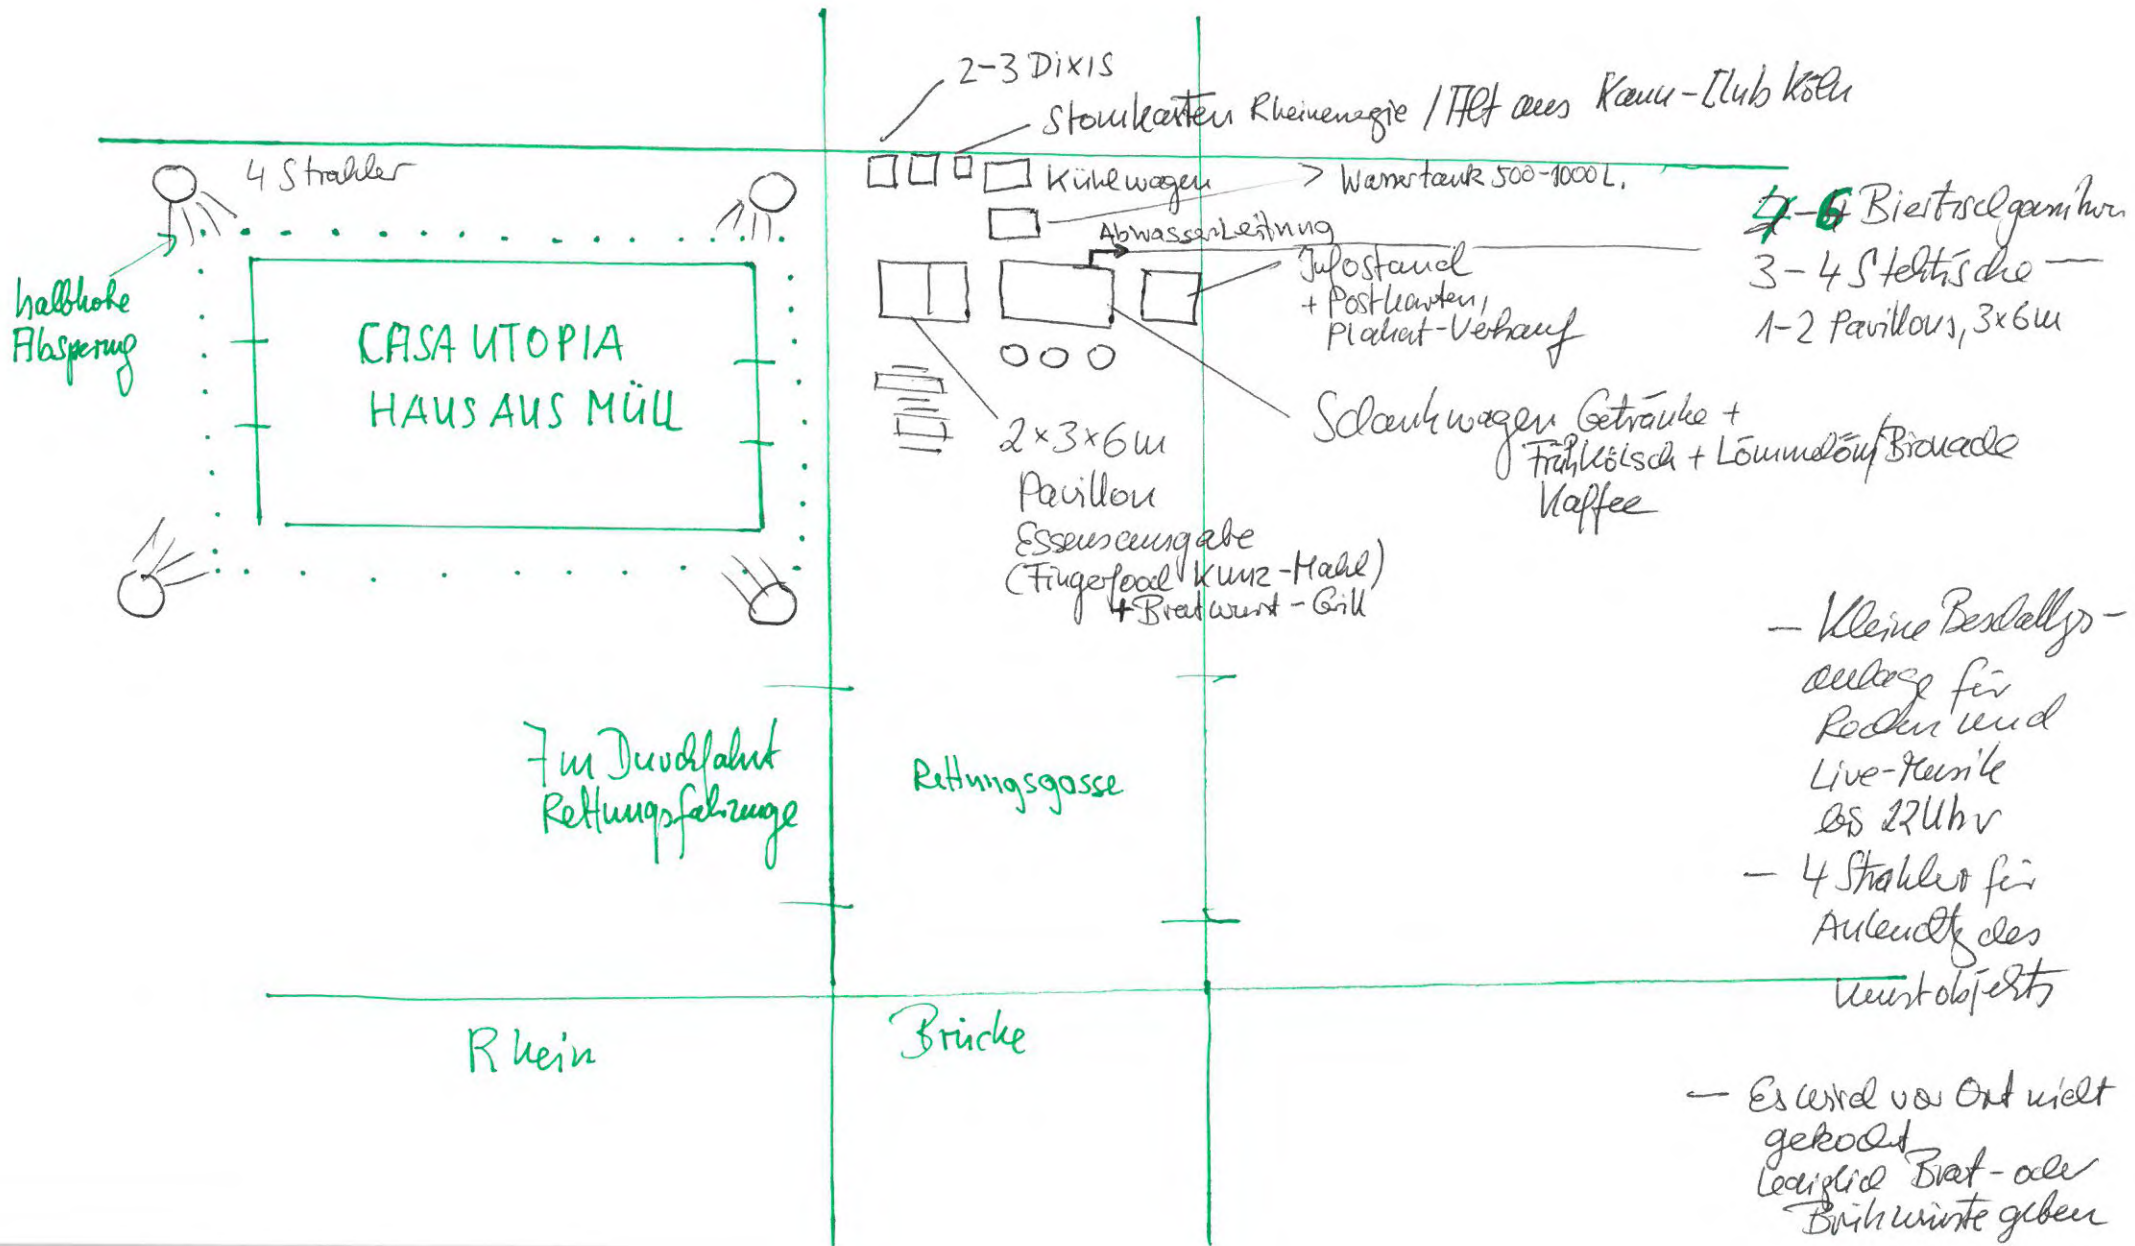 2-3 DIXIS
Stomkasten Rheinenergie / aus Kanu-Club Köln
4 Strahler
Kühlwagen
Wassertank 500-1000 L.
Abwasserleitung
halbhohe
Absperrung
CASA UTOPIA
HAUS AUS MÜLL
Infostand
+ Postkarten,
Plakat-Verkauf
6 Biertischgarnituren
3-4 Stehtische
1-2 Pavillons, 3x6m
2x3x6m
Pavillon
Essensausgabe
(Fingerfood Kunz-Mahl)
+ Bratwurst-Grill
Schankwagen Getränke +
Früh Kölsch + /Bionade
Kaffee
7m Durchfahrt
Rettungsfahrzeuge
Rettungsgasse
- Kleine Beschallgs-
anlage für
Reden und
Live-Musik
bis 22 Uhr
- 4 Strahler für
des
Kunstobjekts
Rhein
Brücke
- Es wird vor Ort nicht
gekocht
lediglich Brat- oder
Brühwürste geben